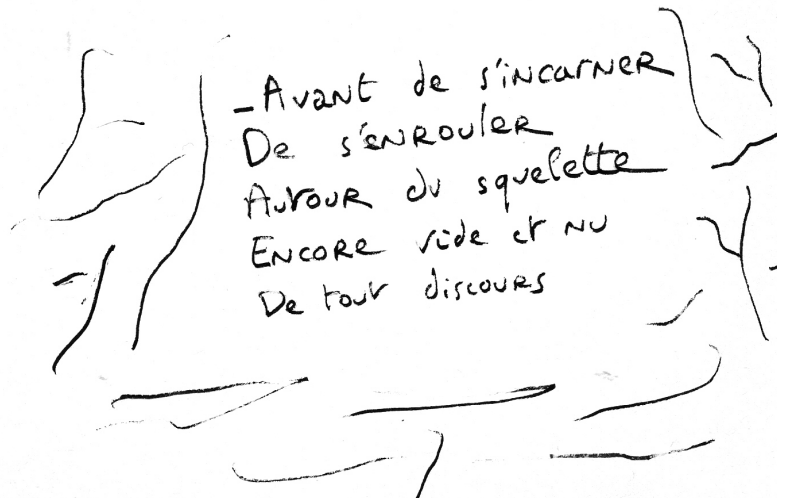 -Avant de s'incarner
De s'enrouler
Autour du squelette
Encore vide et nu
De tout discours